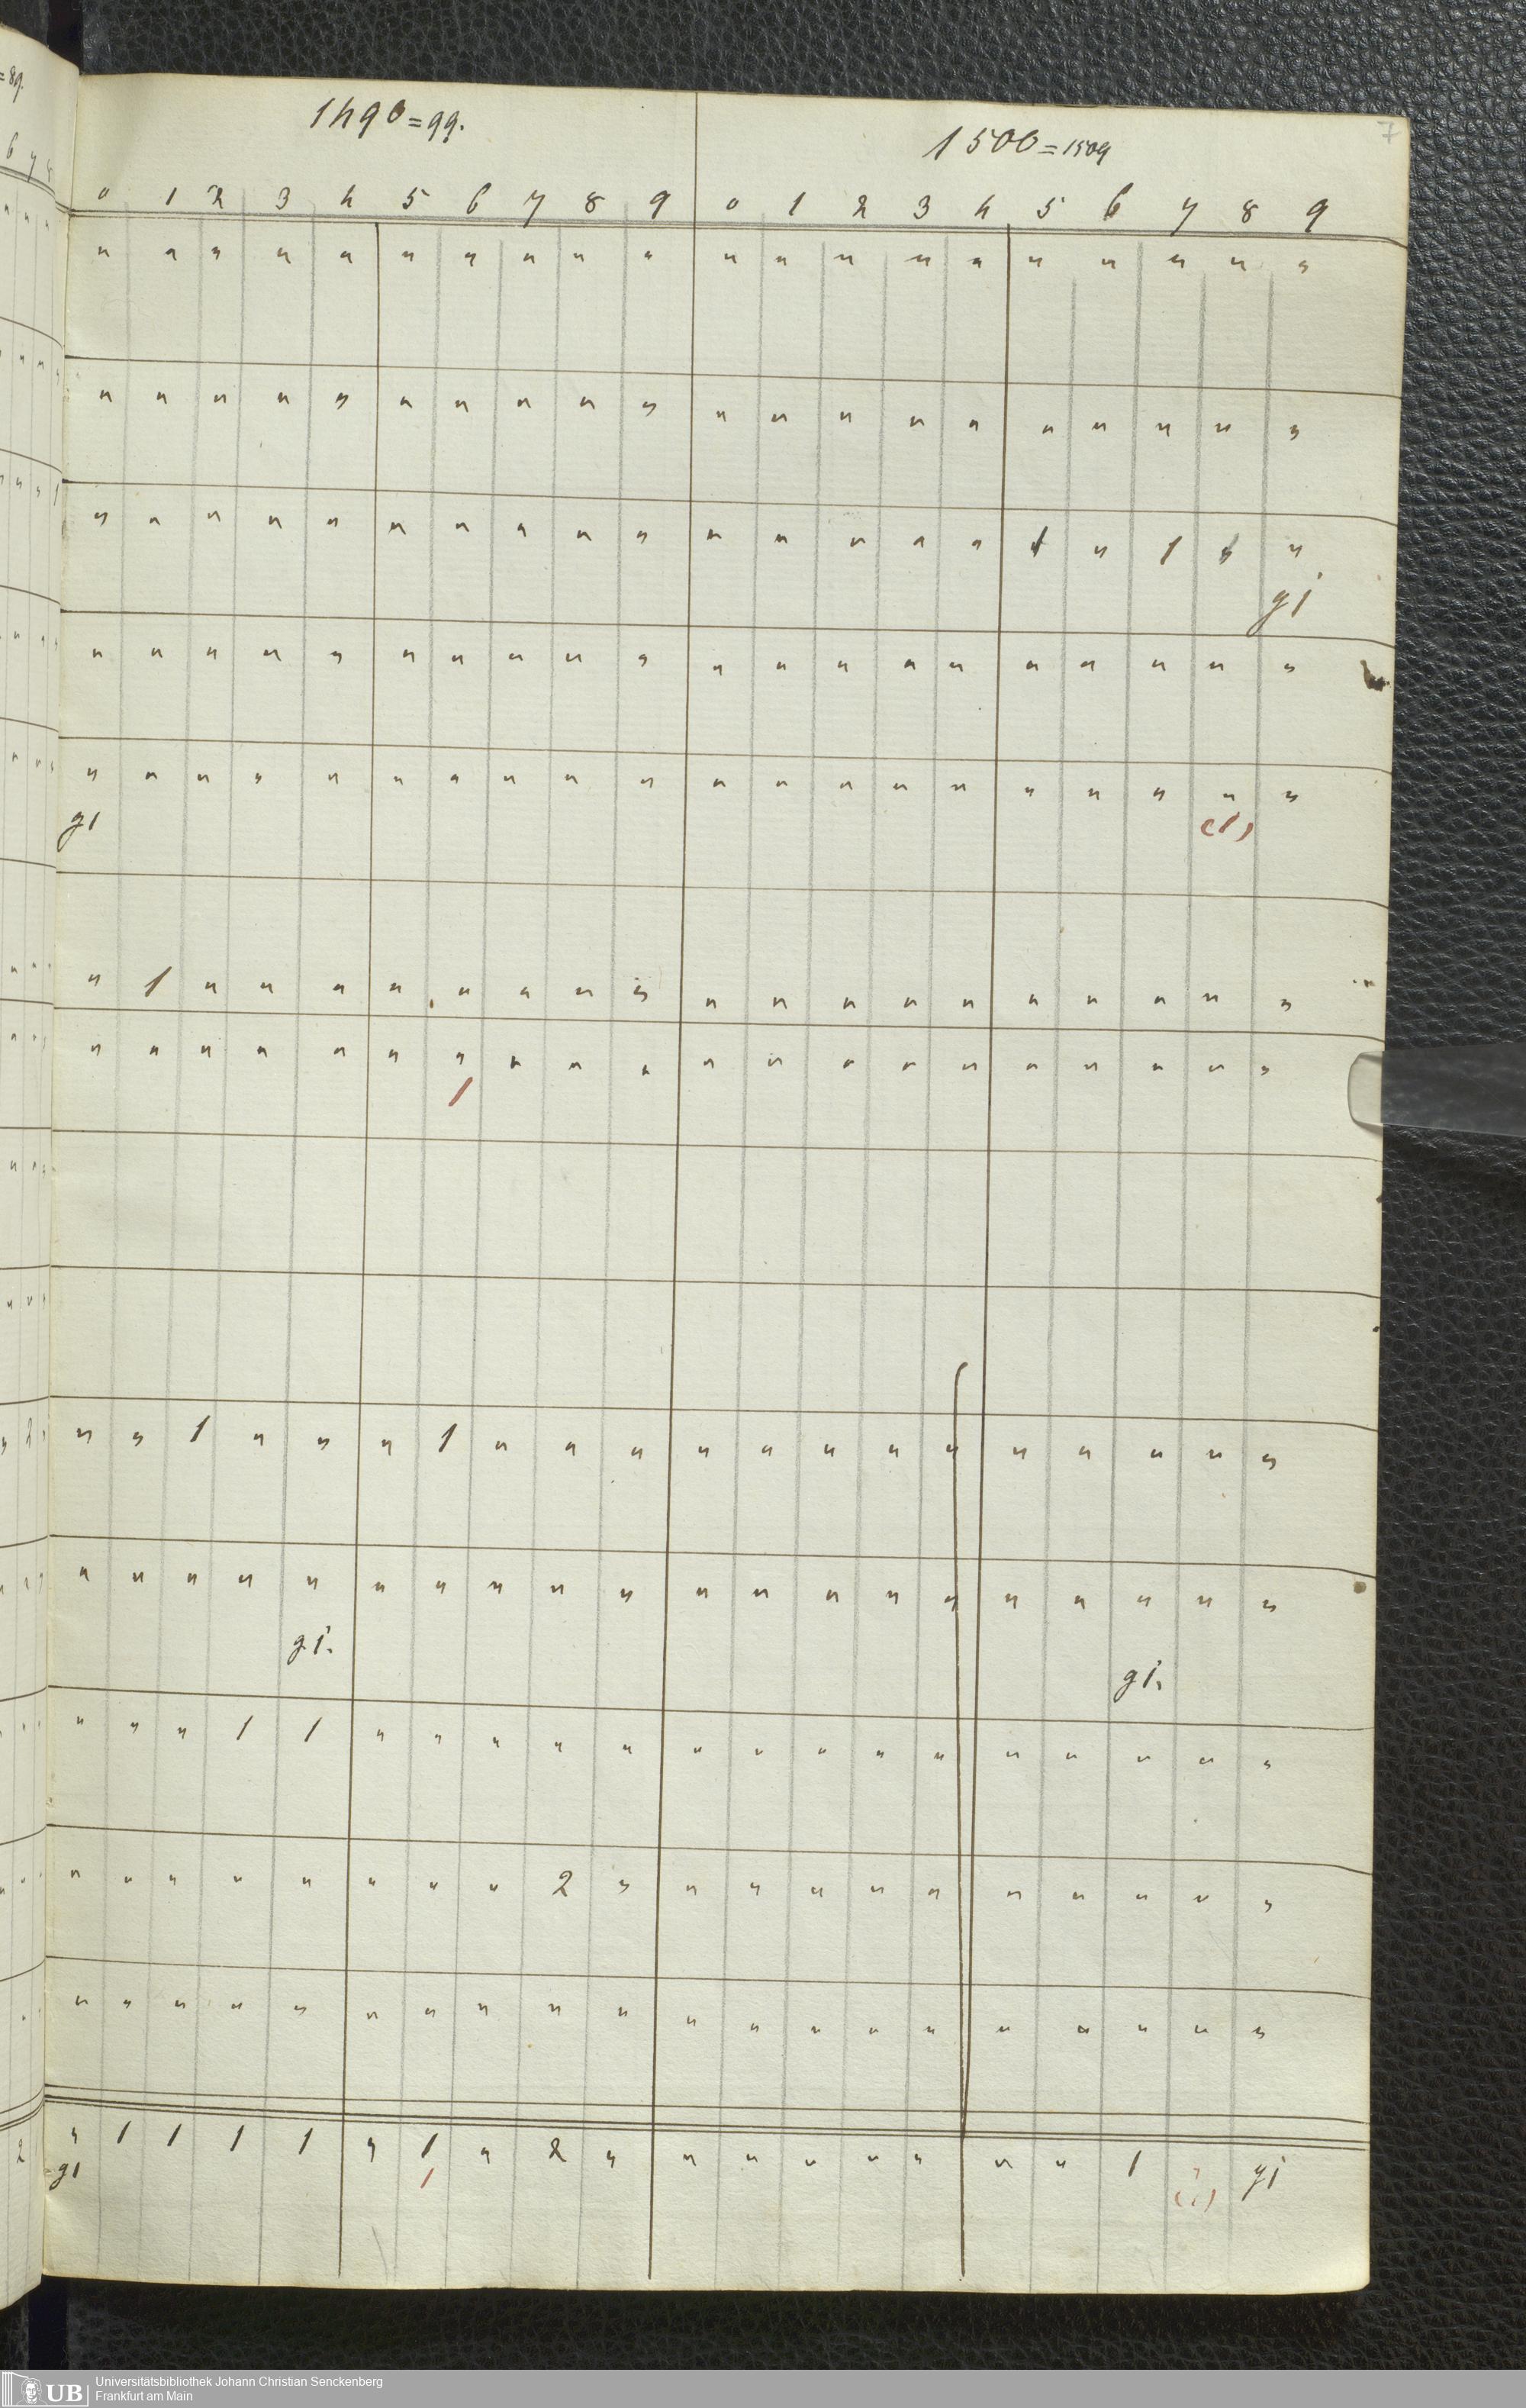 7
1490=99.
1500=1509
0 1 2 3 4 5 6 7 8 9 0 1 2 3 4 5 6 7 8 9
" " " " " " " " " " " " " " " " " " " "
" " " " " " " " " " " " " " " " " " " "
" " " " " " " " " " " " " " " " 1 "
g1
" " " " " " " " " " " " " " " " " " " "
" " " " " " " " " " " " " " " " " " " "
g1 (1)
" 1 " " " " " " " " " " " " " " " " " "
" " " " " " " " " " " " " " " " " " " "
1
" " 1 " " " 1 " " " " " " " " " " " " "
" " " " " " " " " " " " " " " " " " " "
g1. g1.
" " " 1 1 " " " " " " " " " " " " " " "
" " " " " " " " 2 " " " " " " " " " " "
" " " " " " " " " " " " " " " " " " " "
" 1 1 1 1 " 1 " 2 " " " " " " " " 1
g1 1 g1
UB Universitätsbibliothek Johann Christian Senckenberg
Frankfurt am Main